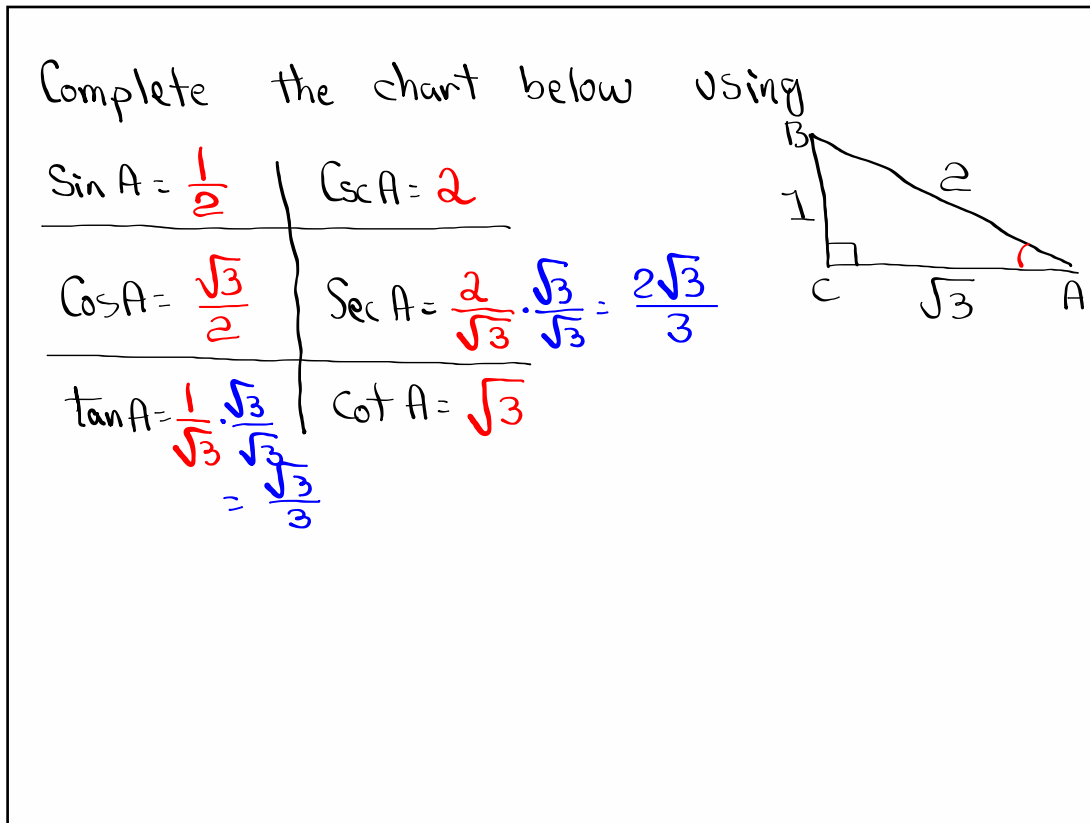 Complete the chart below using
Sin A = 1/2
Csc A = 2
Cos A = √3/2
Sec A = 2/√3 · √3/√3 = 2√3/3
tan A = 1/√3 · √3/√3
= √3/3
Cot A = √3
B
2
1
C
√3
A